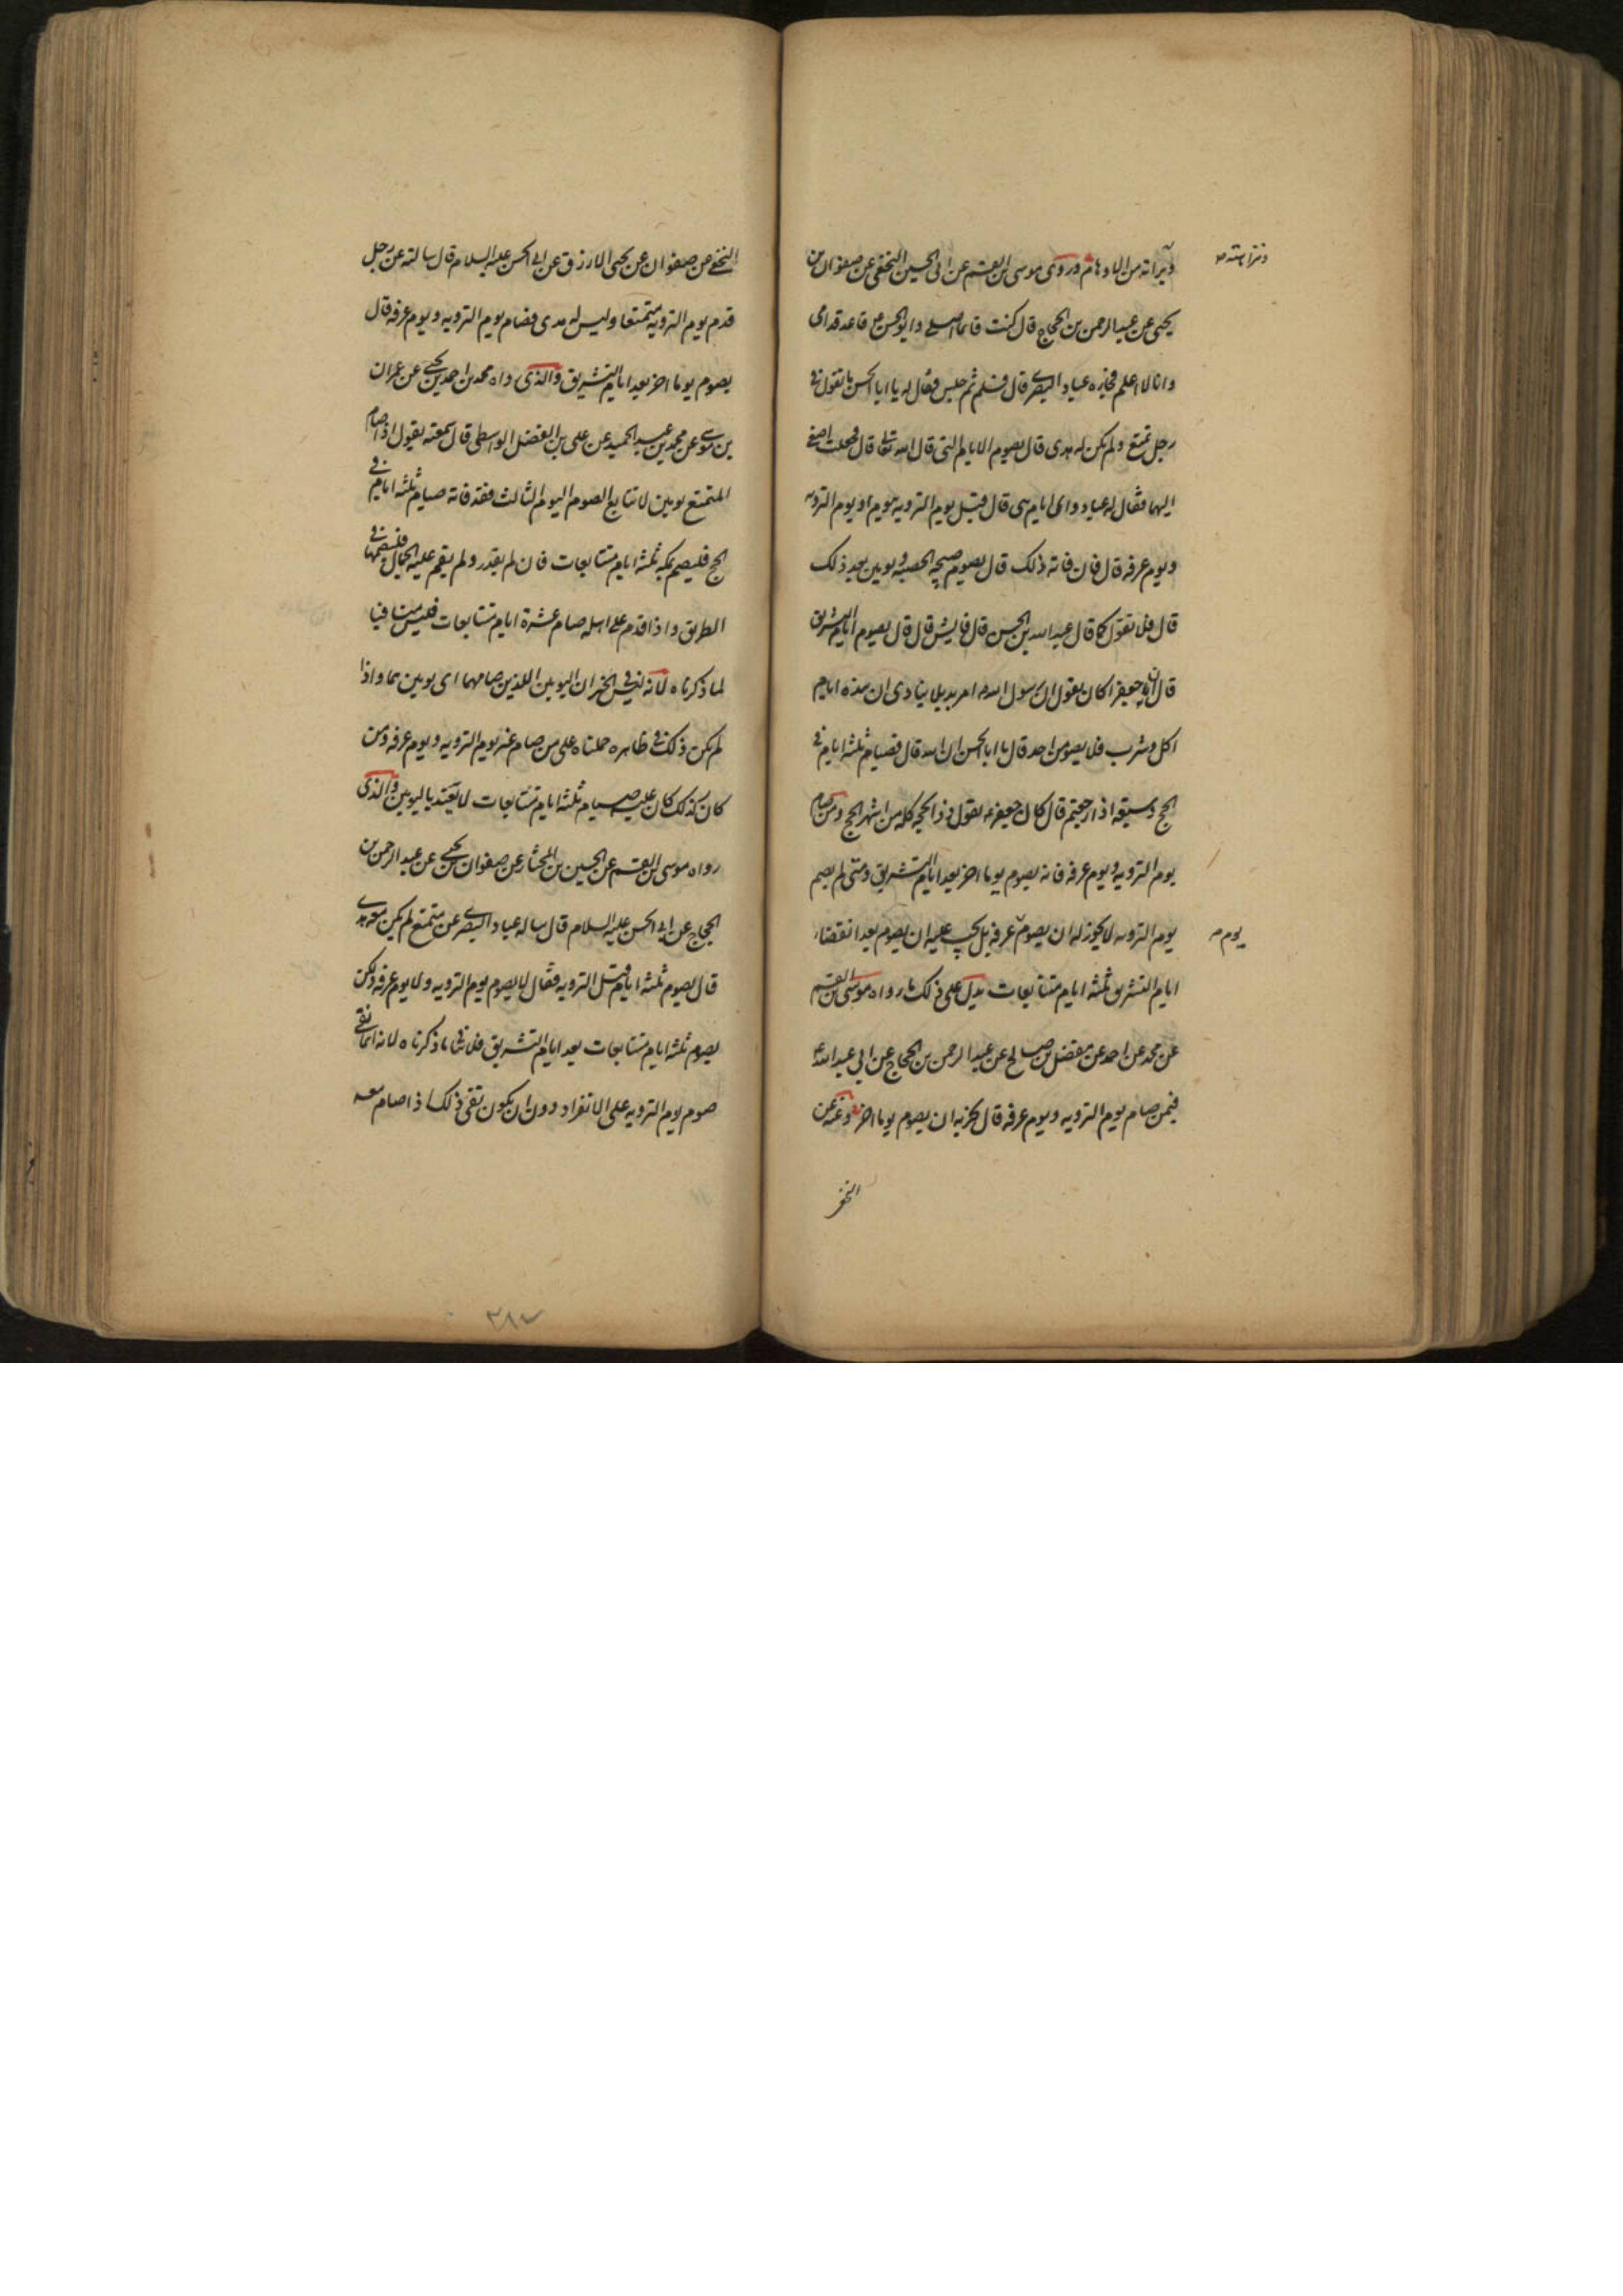 وبراته من الاوهام وروى موسى بن القسم عن ابى الحسين النخعى عن صفوان بن
يحيى عن عبد الرحمن بن الحجاج قال كنت قائما اصلے وابو الحسن ع قاعد قدامى
وانا لا اعلم فجاءه عباد البصرے قال فسلم ثم جلس فقال له يا ابا الحسن ما تقول فى
رجل تمتع ولم يكن له هدى قال يصوم الايام التى قال الله تعالى قال فجعلت اصغے
اليهما فقال له عباد واى ايام هى قال قبل يوم الترويه بيوم ويوم الترويه
ويوم عرفه قال فان فاته ذلك قال يصوم صبيحة الحصبه ويومين بعد ذلك
قال فلا تقول كما قال عبد الله بن الحسن قال فايش قال قال يصوم ايام التشريق
قال ان جعفرا كان يقول ان رسول الله ص امر بديلا ينادى ان هذه ايام
اكل وشرب فلا يصومن احد قال يا ابا الحسن ان الله قال فصيام ثلثة ايام فى
الحج وسبعة اذا رجعتم قال كان جعفر ع يقول ذو الحجه كله من اشهر الحج ومن صام
يوم الترويه ويوم عرفه فانه يصوم يوما اخر بعد ايام التشريق ومتى لم يصم
يوم الترويه لا يجوز له ان يصوم عرفه بل يجب عليه ان يصوم بعد انقضاء
يوم
ايام التشريق ثلثه ايام متتابعات يدل على ذلك ما رواه موسى بن القسم
عن محمد عن احمد عن مفضل بن صالح عن عبد الرحمن بن الحجاج عن ابى عبد الله ع
فيمن صام يوم الترويه ويوم عرفه قال يجزيه ان يصوم يوما اخر وعنه عن
النخعى
النخعے عن صفوان عن يحيى الازرق عن ابى الحسن عليه السلام قال سالته عن رجل
قدم يوم الترويه متمتعا وليس له هدى فصام يوم الترويه ويوم عرفه قال
يصوم يوما اخر بعد ايام التشريق والذى رواه محمد بن احمد بن يحيے عن عمران
بن موسے عن محمد بن عبد الحميد عن على بن الفضل الواسطى قال سمعته يقول اذا صام
المتمتع يومين لا يتابع الصوم اليوم الثالث فقد فاته صيام ثلثه ايام فى
الحج فليصم بمكه ثلثه ايام متتابعات فان لم يقدر ولم يقم عليه الجمال فليصمها فى
الطريق واذا قدم على اهله صام عشرة ايام متتابعات فليس منافيا
لما ذكرناه لانه ليس فى الخبر ان اليومين اللذين صامهما اى يومين هما واذا
لم يكن ذلك فى ظاهره حملناه على من صام غير يوم الترويه ويوم عرفه ومن
كان كذلك كان عليه صيام ثلثه ايام متتابعات لا يعتد باليومين والذى
رواه موسى بن القسم عن الحسين بن المختار عن صفوان بن يحيے عن عبد الرحمن بن
الحجاج عن ابى الحسن عليه السلام قال ساله عباد البصرے عن متمتع لم يكن معه هدے
قال يصوم ثلثه ايام قبل الترويه فقال لا يصوم يوم الترويه ولا يوم عرفه ولكن
يصوم ثلثه ايام متتابعات بعد ايام التشريق فلا ينافى ما ذكرناه لانه انما نفى
صوم يوم الترويه على الانفراد دون ان يكون نفى ذلك اذا صام معه